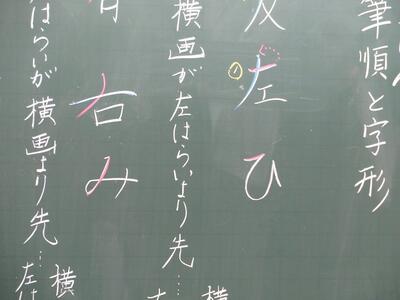 筆順と字形
①左ひ
横画が左はらいより先…
横
右み
はらいが横画より先…
横
左は